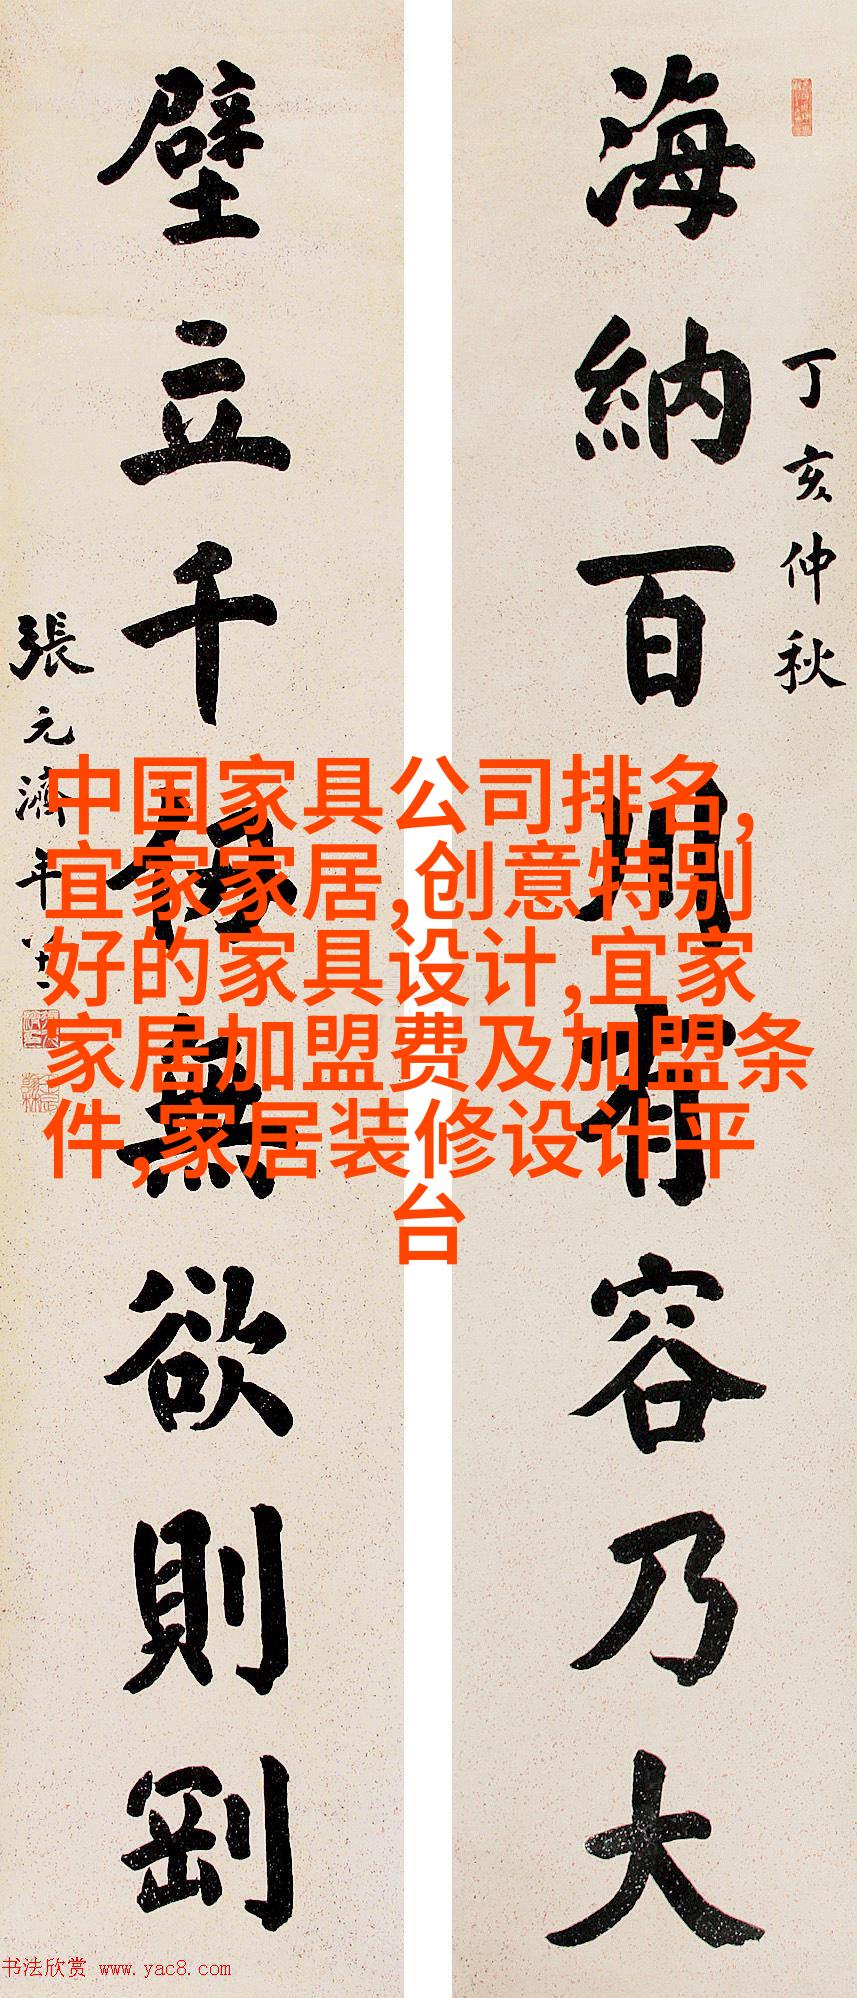 海納百川有容乃大
丁亥仲秋
壁立千仞無欲則剛
張元濟年
中国家具公司排名,
宜家家居,创意特别
好的家具设计,宜家
家居加盟费及加盟条
件,家居装修设计平
台
书法欣赏 www.yac8.com